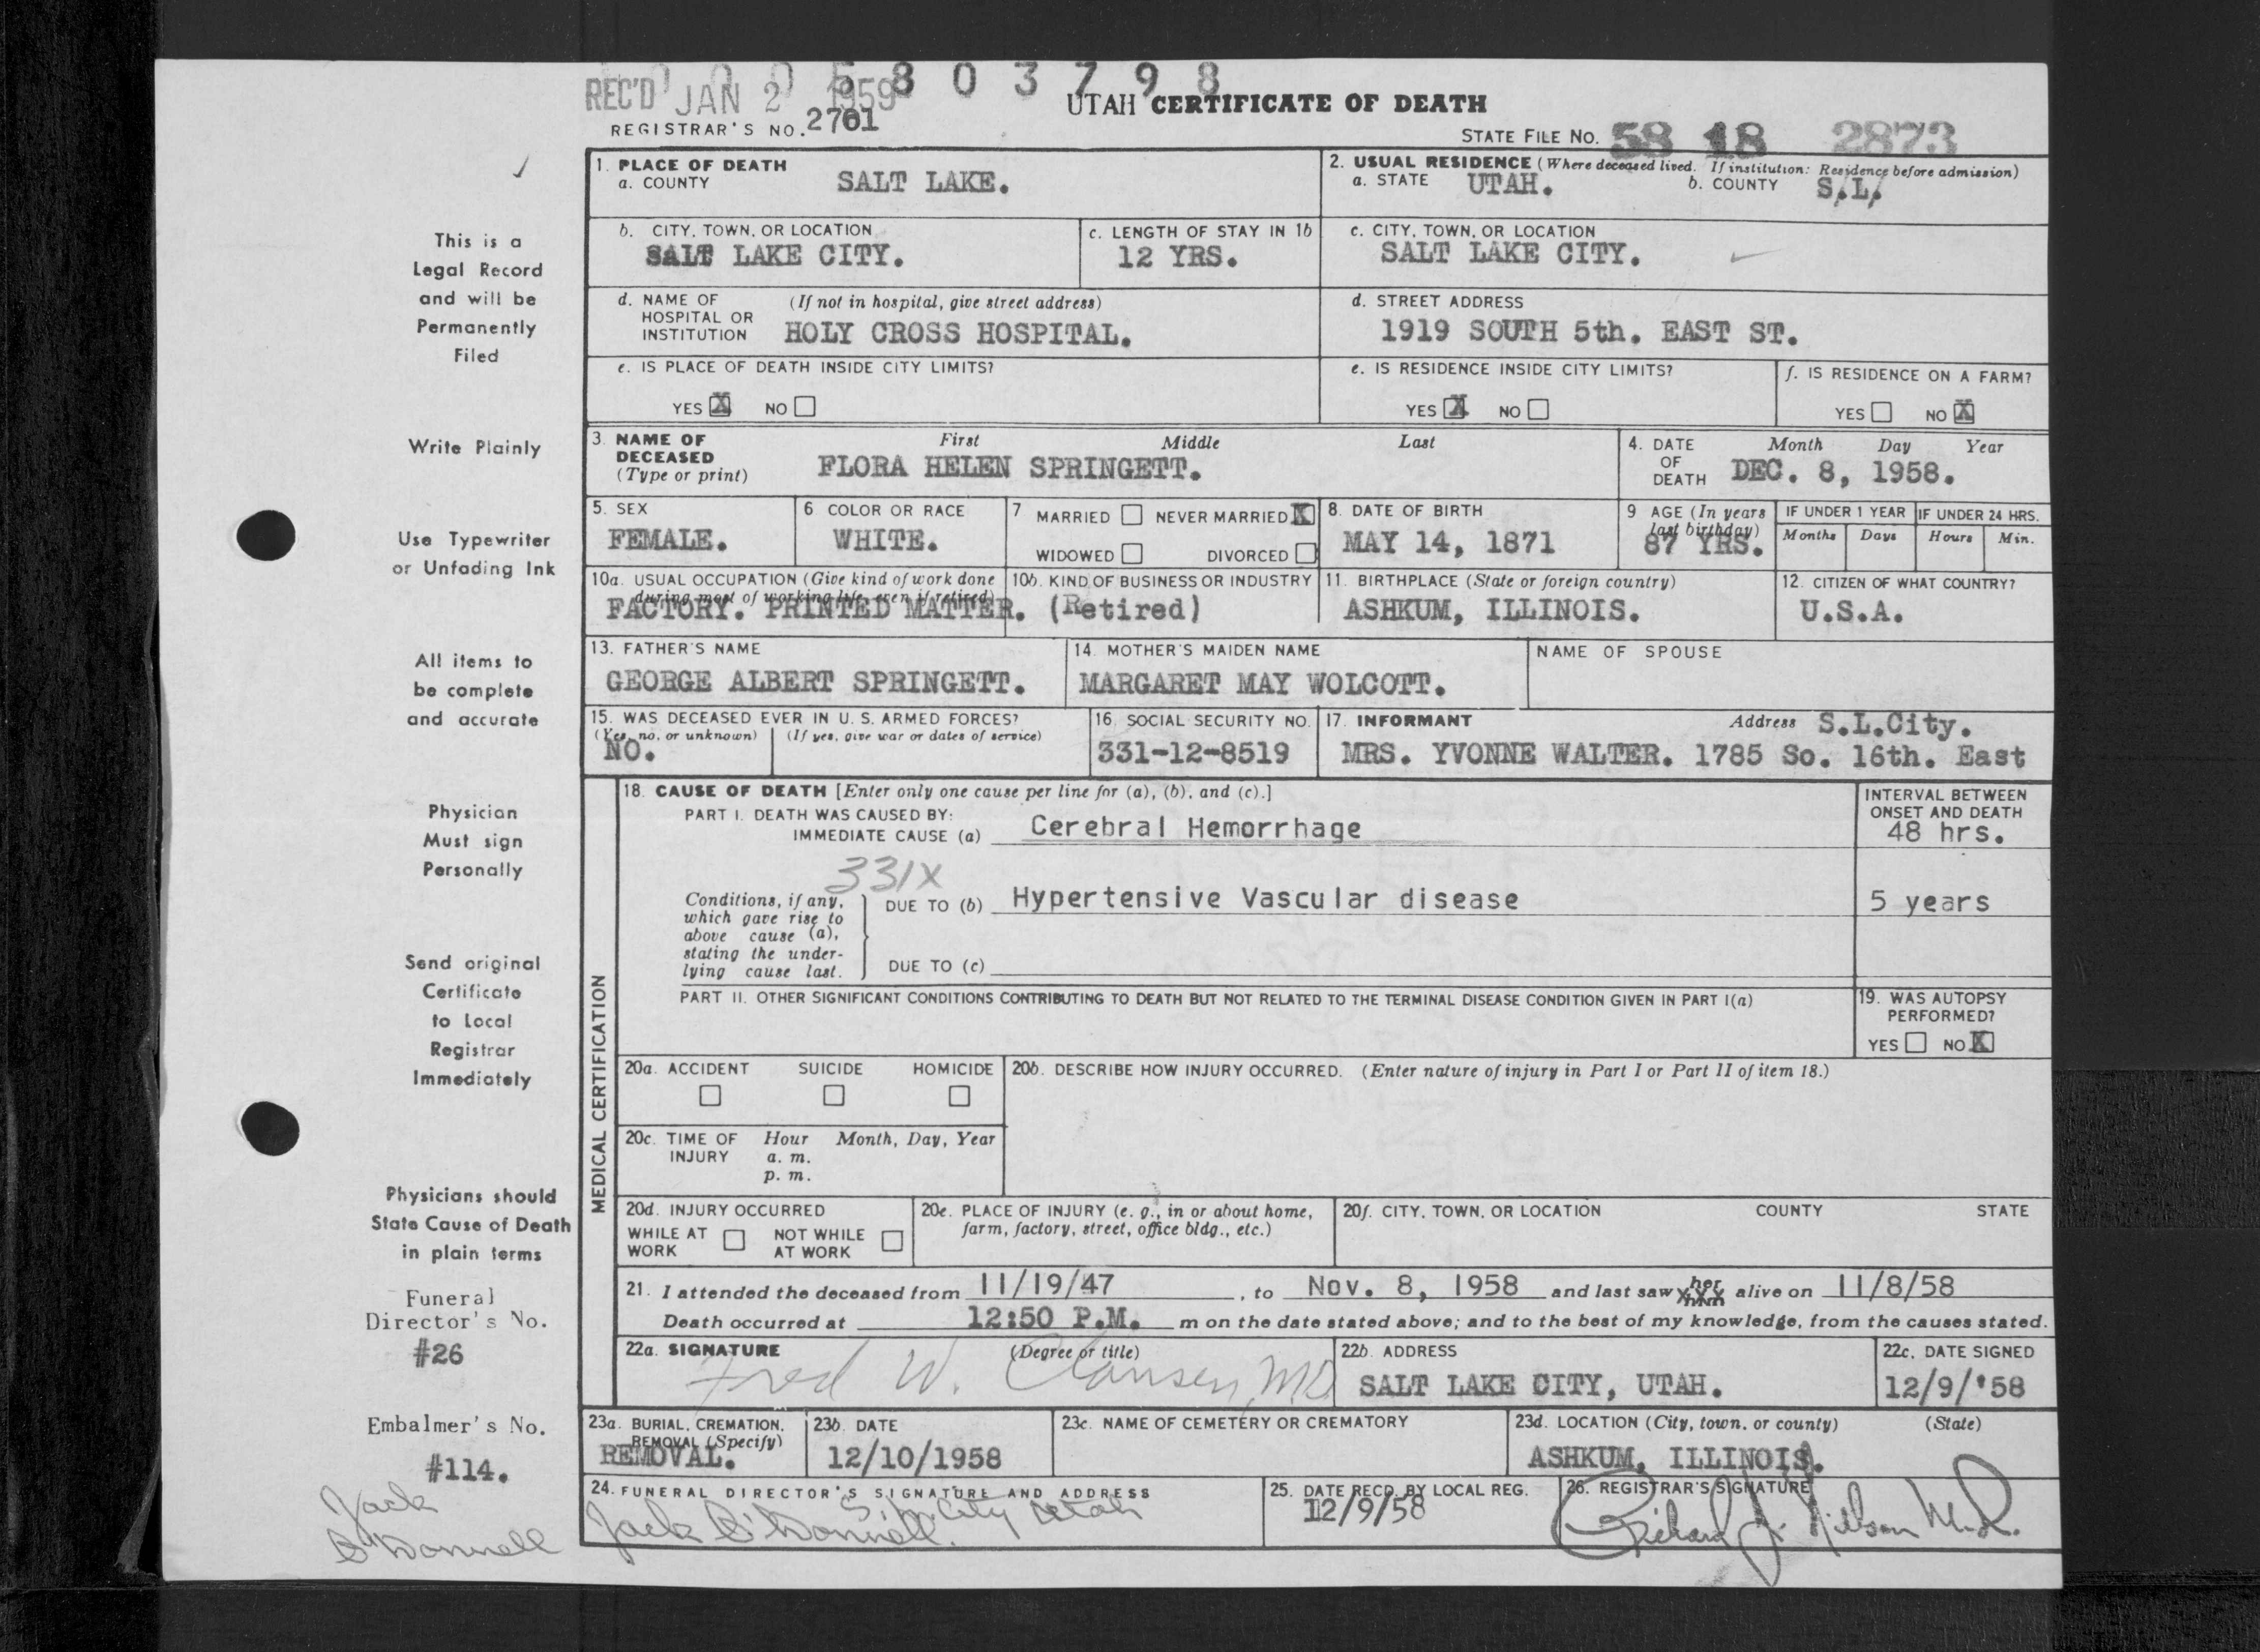 0 0 0 5 8 0 3 7 9 8
REC'D JAN 2 1959
UTAH CERTIFICATE OF DEATH
REGISTRAR'S NO. 2701
STATE FILE NO. 58 18 2873
1. PLACE OF DEATH
a. COUNTY SALT LAKE.
2. USUAL RESIDENCE (Where deceased lived. If institution: Residence before admission)
a. STATE UTAH. b. COUNTY S.L.
b. CITY, TOWN, OR LOCATION
SALT LAKE CITY.
c. LENGTH OF STAY IN 1b
12 YRS.
c. CITY, TOWN, OR LOCATION
SALT LAKE CITY.
d. NAME OF HOSPITAL OR INSTITUTION (If not in hospital, give street address)
HOLY CROSS HOSPITAL.
d. STREET ADDRESS
1919 SOUTH 5th. EAST ST.
e. IS PLACE OF DEATH INSIDE CITY LIMITS?
YES X NO
e. IS RESIDENCE INSIDE CITY LIMITS?
YES X NO
f. IS RESIDENCE ON A FARM?
YES NO X
3. NAME OF DECEASED (Type or print)
First Middle Last
FLORA HELEN SPRINGETT.
4. DATE OF DEATH
Month Day Year
DEC. 8, 1958.
5. SEX
FEMALE.
6 COLOR OR RACE
WHITE.
7 MARRIED NEVER MARRIED X
WIDOWED DIVORCED
8. DATE OF BIRTH
MAY 14, 1871
9 AGE (In years last birthday)
87 YRS.
IF UNDER 1 YEAR
Months Days
IF UNDER 24 HRS.
Hours Min.
10a. USUAL OCCUPATION (Give kind of work done during most of working life, even if retired)
10b. KIND OF BUSINESS OR INDUSTRY
FACTORY. PRINTED MATTER. (Retired)
11. BIRTHPLACE (State or foreign country)
ASHKUM, ILLINOIS.
12. CITIZEN OF WHAT COUNTRY?
U.S.A.
13. FATHER'S NAME
GEORGE ALBERT SPRINGETT.
14. MOTHER'S MAIDEN NAME
MARGARET MAY WOLCOTT.
NAME OF SPOUSE
15. WAS DECEASED EVER IN U. S. ARMED FORCES?
(Yes, no, or unknown) (If yes, give war or dates of service)
NO.
16. SOCIAL SECURITY NO.
331-12-8519
17. INFORMANT Address S.L.City.
MRS. YVONNE WALTER. 1785 So. 16th. East
MEDICAL CERTIFICATION
18. CAUSE OF DEATH [Enter only one cause per line for (a), (b), and (c).]
INTERVAL BETWEEN ONSET AND DEATH
PART I. DEATH WAS CAUSED BY:
IMMEDIATE CAUSE (a) Cerebral Hemorrhage 48 hrs.
331X
Conditions, if any, which gave rise to above cause (a), stating the underlying cause last.
DUE TO (b) Hypertensive Vascular disease 5 years
DUE TO (c)
PART II. OTHER SIGNIFICANT CONDITIONS CONTRIBUTING TO DEATH BUT NOT RELATED TO THE TERMINAL DISEASE CONDITION GIVEN IN PART I(a)
19. WAS AUTOPSY PERFORMED?
YES NO X
20a. ACCIDENT SUICIDE HOMICIDE
20b. DESCRIBE HOW INJURY OCCURRED. (Enter nature of injury in Part I or Part II of item 18.)
20c. TIME OF INJURY Hour Month, Day, Year
a. m.
p. m.
20d. INJURY OCCURRED
WHILE AT WORK NOT WHILE AT WORK
20e. PLACE OF INJURY (e. g., in or about home, farm, factory, street, office bldg., etc.)
20f. CITY, TOWN, OR LOCATION COUNTY STATE
21. I attended the deceased from 11/19/47, to Nov. 8, 1958 and last saw her him alive on 11/8/58
Death occurred at 12:50 P.M. m on the date stated above; and to the best of my knowledge, from the causes stated.
22a. SIGNATURE (Degree or title)
Fred W. Clausen, MD
22b. ADDRESS
SALT LAKE CITY, UTAH.
22c. DATE SIGNED
12/9/'58
23a. BURIAL, CREMATION, REMOVAL (Specify)
REMOVAL.
23b. DATE
12/10/1958
23c. NAME OF CEMETERY OR CREMATORY
23d. LOCATION (City, town, or county) (State)
ASHKUM, ILLINOIS.
24. FUNERAL DIRECTOR'S SIGNATURE AND ADDRESS
Jack O'Donnell. S. L. City Utah
25. DATE RECD. BY LOCAL REG.
12/9/58
26. REGISTRAR'S SIGNATURE
Richard J. Nilson M.D.
This is a
Legal Record
and will be
Permanently
Filed
Write Plainly
Use Typewriter
or Unfading Ink
All items to
be complete
and accurate
Physician
Must sign
Personally
Send original
Certificate
to Local
Registrar
Immediately
Physicians should
State Cause of Death
in plain terms
Funeral
Director's No.
#26
Embalmer's No.
#114.
Jack
O'Donnell